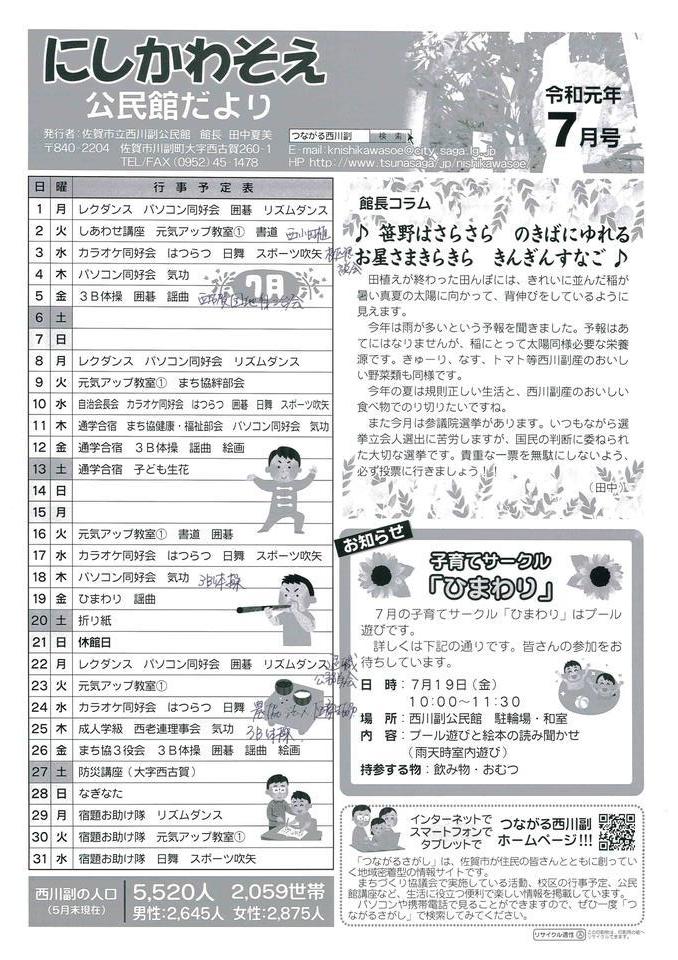 にしかわそえ
公民館だより
発行者：佐賀市立西川副公民館　館長　田中夏美
〒840-2204　佐賀市川副町大字西古賀260-1
TEL/FAX (0952) 45-1478
つながる西川副　検索
E-mail:knishikawasoe@city.saga.lg.jp
HP http://www.tsunasaga.jp/nishikawasoe/
令和元年
7月号
日　曜　行事予定表
1　月　レクダンス　パソコン同好会　囲碁　リズムダンス
2　火　しあわせ講座　元気アップ教室①　書道
3　水　カラオケ同好会　はつらつ　日舞　スポーツ吹矢
4　木　パソコン同好会　気功
5　金　３Ｂ体操　囲碁　謡曲
7月
6　土
7　日
8　月　レクダンス　パソコン同好会　リズムダンス
9　火　元気アップ教室①　まち協絆部会
10　水　自治会長会　カラオケ同好会　はつらつ　囲碁　日舞　スポーツ吹矢
11　木　通学合宿　まち協健康・福祉部会　パソコン同好会　気功
12　金　通学合宿　３Ｂ体操　謡曲　絵画
13　土　通学合宿　子ども生花
14　日
15　月
16　火　元気アップ教室①　書道　囲碁
17　水　カラオケ同好会　はつらつ　日舞　スポーツ吹矢
18　木　パソコン同好会　気功　3B体操
19　金　ひまわり　謡曲
20　土　折り紙
21　日　休館日
22　月　レクダンス　パソコン同好会　囲碁　リズムダンス
23　火　元気アップ教室①
24　水　カラオケ同好会　はつらつ　日舞
25　木　成人学級　西老連理事会　気功　3B体操
26　金　まち協３役会　３Ｂ体操　囲碁　謡曲　絵画
27　土　防災講座（大字西古賀）
28　日　なぎなた
29　月　宿題お助け隊　リズムダンス
30　火　宿題お助け隊　元気アップ教室①
31　水　宿題お助け隊　日舞　スポーツ吹矢
西川副の人口
（5月末現在）
5,520人　2,059世帯
男性：2,645人　女性：2,875人
館長コラム
♪ 笹野はさらさら　のきばにゆれる
お星さまきらきら　きんぎんすなご ♪
　田植えが終わった田んぼには、きれいに並んだ稲が
暑い真夏の太陽に向かって、背伸びをしているように
見えます。
　今年は雨が多いという予報を聞きました。予報はあ
てにはなりませんが、稲にとって太陽同様必要な栄養
源です。きゅーり、なす、トマト等西川副産のおいし
い野菜類も同様です。
　今年の夏は規則正しい生活と、西川副産のおいしい
食べ物でのり切りたいですね。
　また今月は参議院選挙があります。いつもながら選
挙立会人選出に苦労しますが、国民の判断に委ねられ
た大切な選挙です。貴重な一票を無駄にしないよう、
必ず投票に行きましょう！！
（田中）
お知らせ
子育てサークル
「ひまわり」
　７月の子育てサークル「ひまわり」はプール
遊びです。
　詳しくは下記の通りです。皆さんの参加をお
待ちしています。
日　時：7月19日（金）
10:00～11:30
場　所：西川副公民館　駐輪場・和室
内　容：プール遊びと絵本の読み聞かせ
（雨天時室内遊び）
持参する物：飲み物・おむつ
インターネットで
スマートフォンで
タブレットで
つながる西川副
ホームページ!!!
　「つながるさがし」は、佐賀市が住民の皆さんとともに創ってい
く地域密着型の情報サイトです。
　まちづくり協議会で実施している活動、校区の行事予定、公民
館講座など、生活に役立つ便利で楽しい情報を掲載しています。
　パソコンや携帯電話で見ることができますので、ぜひ一度「つ
ながるさがし」で検索してみてください。
リサイクル適性 Ⓐ
この印刷物は、印刷用の紙へ
リサイクルできます。